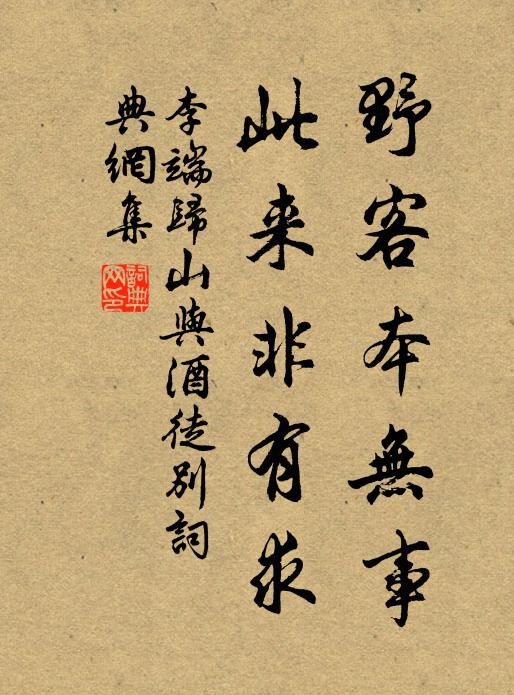 野客本無事
此来非有求
李端歸山與酒徒別詞
典網集
詞典網印